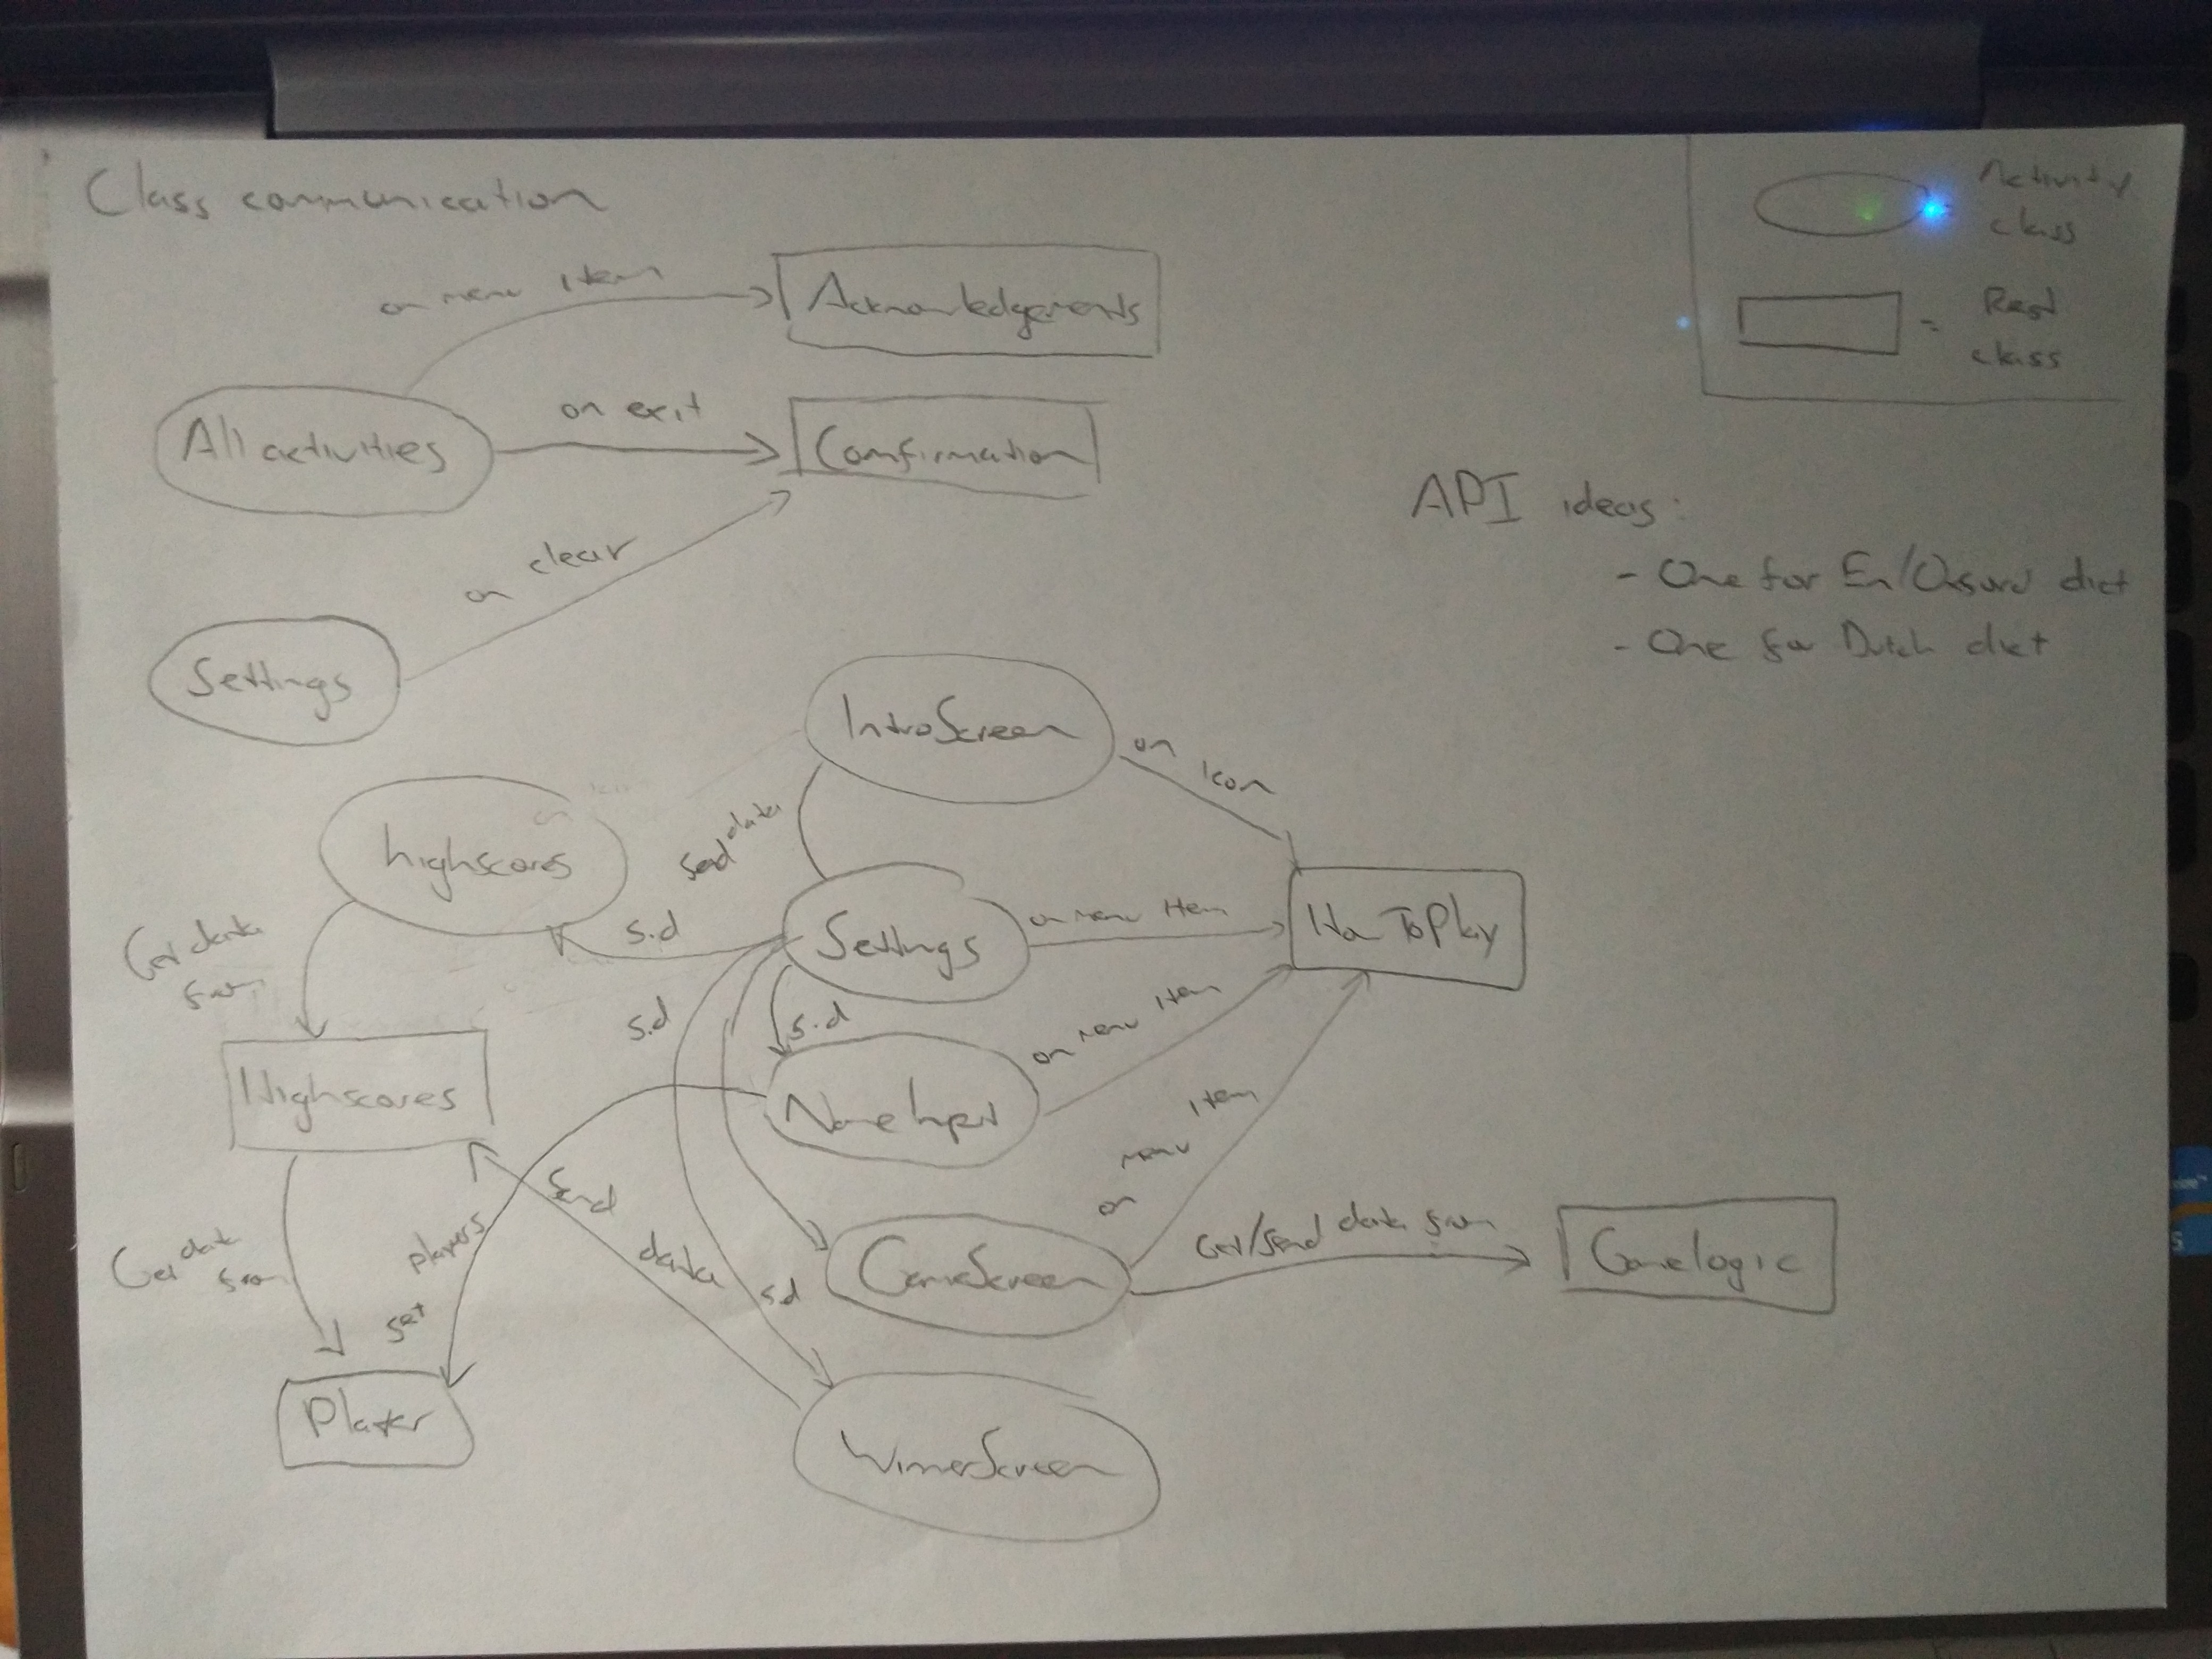 Class communication
Activity
class
=
Rest
class
on menu item
Acknowledgements
All activities
on exit
Comfirmation
on clear
Settings
API ideas:
- One for En/Oxford dict
- One for Dutch dict
IntroScreen
on icon
send data
highscores
s.d
Settings
on menu item
HowToPlay
Get data
from
s.d
s.d
on menu item
Highscores
NameInput
on menu item
send data
Get data
from
set players
s.d
GameScreen
Get/Send data from
Gamelogic
Player
WinnerScreen